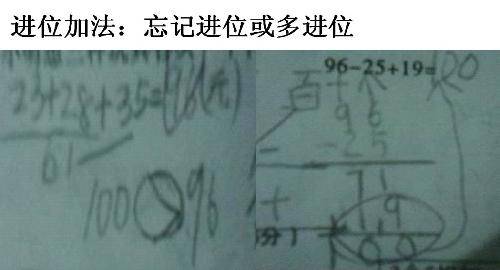 进位加法：忘记进位或多进位
23+28+35=96(元)
61
100>96
96-25+19=100
百十个
96
-25
71
+19
100